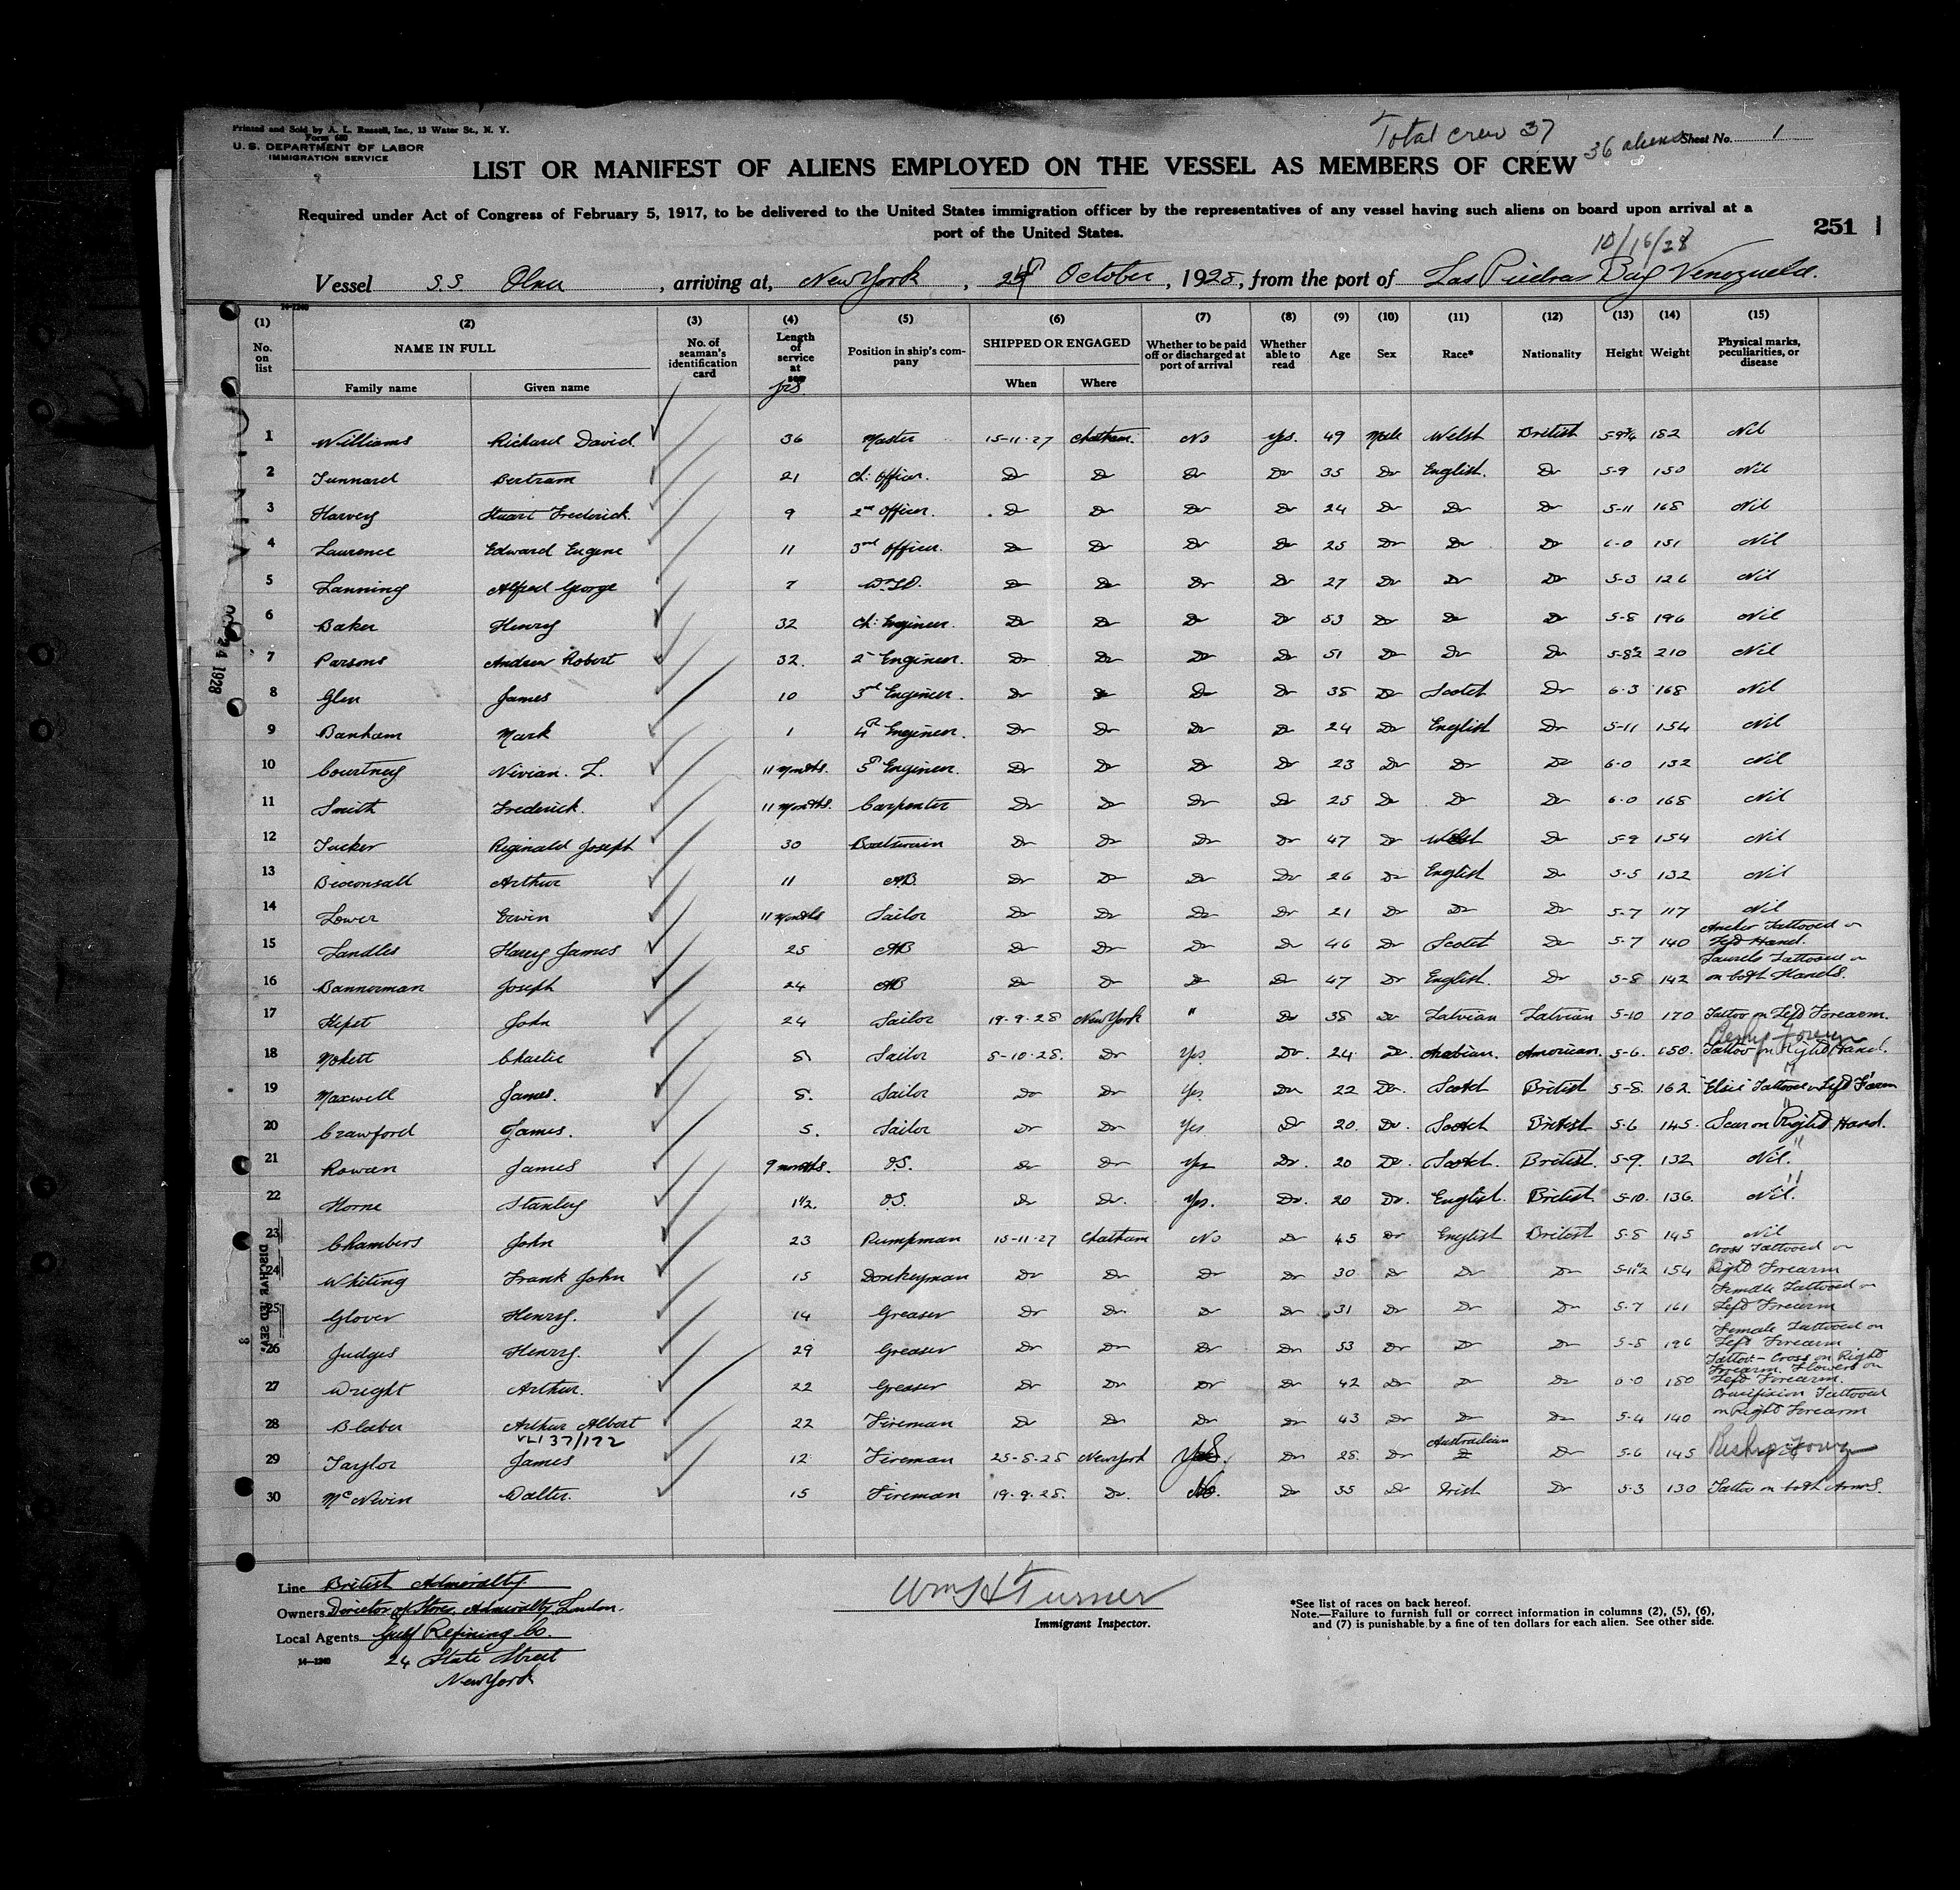 Printed and Sold by A. L. Russell, Inc., 13 Water St., N. Y.
Form 680
U. S. DEPARTMENT OF LABOR
IMMIGRATION SERVICE
Total crew 37
36 aliens
Sheet No. 1
LIST OR MANIFEST OF ALIENS EMPLOYED ON THE VESSEL AS MEMBERS OF CREW
Required under Act of Congress of February 5, 1917, to be delivered to the United States immigration officer by the representatives of any vessel having such aliens on board upon arrival at a
port of the United States.
251
10/16/28
Vessel S.S. Olna, arriving at, New York, October, 1928, from the port of Las Piedras Bay Venezuela.
14-1240
(1) (2) (3) (4) (5) (6) (7) (8) (9) (10) (11) (12) (13) (14) (15)
No. on list NAME IN FULL Family name Given name No. of seaman's identification card Length of service at sea yrs. Position in ship's company SHIPPED OR ENGAGED When Where Whether to be paid off or discharged at port of arrival Whether able to read Age Sex Race* Nationality Height Weight Physical marks, peculiarities, or disease
1 Williams Richard David 36 Master 15-11-27 Chatham. No Yes. 49 Male Welsh British 5-9¾ 182 Nil
2 Tunnard Bertram 21 Ch: Officer. Do Do Do Do 35 Do English. Do 5-9 150 Nil
3 Harvey Stuart Frederick. 9 2nd Officer. Do Do Do Do 24 Do Do Do 5-11 168 Nil
4 Laurence Edward Eugene 11 3rd Officer. Do Do Do Do 25 Do Do Do 6-0 151 Nil
5 Lanning Alfred George 7 W.T.O. Do Do Do Do 27 Do Do Do 5-3 126 Nil
6 Baker Henry 32 Ch: Engineer. Do Do Do Do 53 Do Do Do 5-8 196 Nil
7 Parsons Andrew Robert 32. 2 Engineer. Do Do Do Do 51 Do Do Do 5-8½ 210 Nil
8 Glen James 10 3rd Engineer. Do Do Do Do 38 Do Scotch Do 6-3 168 Nil
9 Banham Mark 1 4th Engineer. Do Do Do Do 24 Do English Do 5-11 154 Nil
10 Courtney Nivian. L. 11 months. 5th Engineer. Do Do Do Do 23 Do Do Do 6-0 132 Nil
11 Smith Frederick. 11 months. Carpenter Do Do Do Do 25 Do Do Do 6-0 168 Nil
12 Tucker Reginald Joseph 30 Boatswain Do Do Do Do 47 Do Welsh Do 5-9 154 Nil
13 Bioconsall Arthur 11 AB. Do Do Do Do 26 Do English Do 5-5 132 Nil
14 Lower Erwin 11 months Sailor Do Do Do Do 21 Do Do Do 5-7 117 Nil
15 Landles Harry James 25 AB Do Do Do Do 46 Do Scotch Do 5-7 140 Anchor Tattooed on Left Hand.
16 Bannerman Joseph 24 AB Do Do Do Do 47 Do English. Do 5-8 142 Laurels Tattooed on on both Hands.
17 Hepst John 24 Sailor 19-9-28 New York " Do 38 Do Latvian Latvian 5-10 170 Tattoo on Left Forearm.
18 Mokett Charlie 5 Sailor 8-10-28. Do Yes Do. 24 Do. Arabian. American. 5-6. 150. Tattoo on Right Hand.
19 Maxwell James. 5. Sailor Do Do Yes. Do 22 Do. Scotch British 5-8. 162. "Elsie" Tattooed on Left F'arm
20 Crawford James. 5. Sailor Do Do Yes Do 20. Do. Scotch British 5-6 145. Scar on Right Hand.
21 Rowan James 9 months. O.S. Do Do Yes Do. 20 Do. Scotch. British. 5-9. 132 Nil. "
22 Horne Stanley 1½. O.S. Do Do. Yes. Do. 20 Do. English. British 5-10. 136. Nil. "
23 Chambers John 23 Pumpman 15-11-27 Chatham No Do 45 Do English British 5-8 145 Nil
24 Whiting Frank John 15 Donkeyman Do Do Do Do 30 Do Do Do 5-11½ 154 Cross Tattooed on Right Forearm
25 Glover Henry. 14 Greaser Do Do Do Do 31 Do Do Do 5-7 161 Female Tattooed on Left Forearm
26 Judges Henry. 29 Greaser Do Do Do Do 53 Do Do Do 5-8 196 Female Tattooed on Left Forearm
27 Wright Arthur. 22 Greaser Do Do Do Do 42 Do Do Do 6-0 180 Tattoo - Cross on Right Forearm Flowers on Left Forearm.
28 Blaber Arthur Albert 22 Fireman Do Do Do Do 43 Do Do Do 5-4 140 Crucifixion Tattooed on Right Forearm
VL1 37/172
29 Taylor James 12 Fireman 25-8-28 New York Yes. Do 28. Do Australian Do 5-6 145
30 McNivin Walter. 15 Fireman 19-9-28. Do. No. Do 35 Do Irish Do 5-3 130 Tattoo on both Arms.
24 1928
Line British Admiralty
Owners Director of Stores, Admiralty, London.
Local Agents Gulf Refining Co.
24 State Street
New York
14-1240
Wm H Turner
Immigrant Inspector.
*See list of races on back hereof.
Note.—Failure to furnish full or correct information in columns (2), (5), (6),
and (7) is punishable by a fine of ten dollars for each alien. See other side.